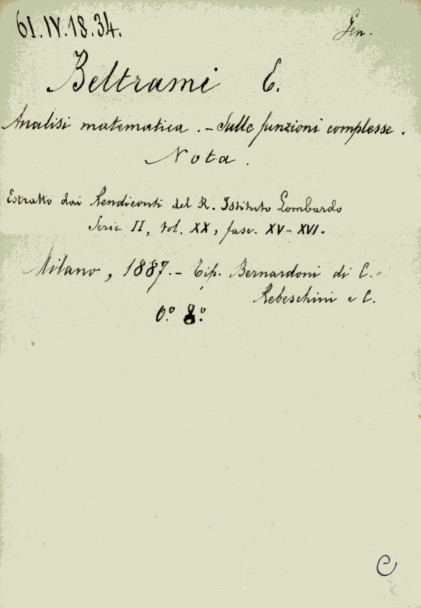 61.IV.18.34.
Gen.
Beltrami E.
Analisi matematica. - Sulle funzioni complesse.
Nota.
Estratto dai Rendiconti del R. Istituto Lombardo
Serie II, vol. XX, fasc. XV-XVI.
Milano, 1887. - Tip. Bernardoni di C.
Rebeschini e C.
8º
C